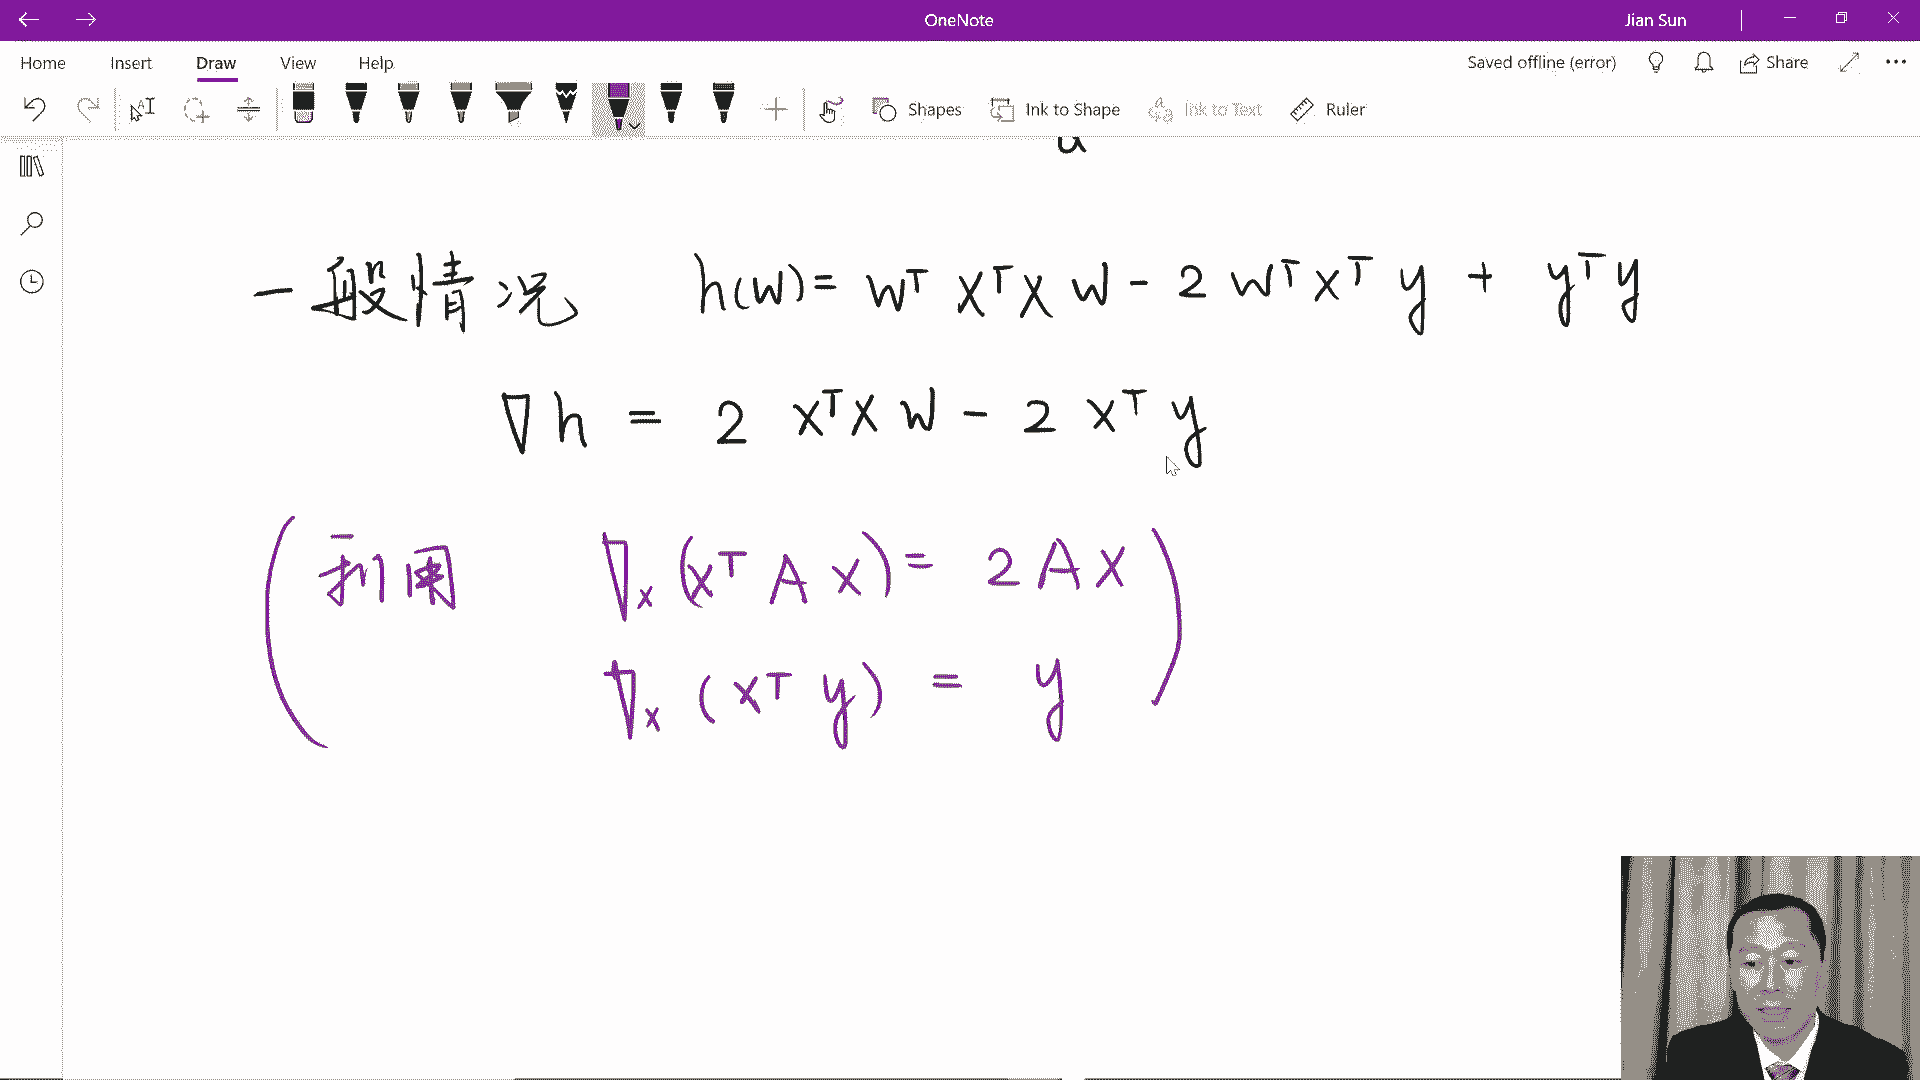 OneNote
Jian Sun
Home Insert Draw View Help
Saved offline (error) Share
Shapes Ink to Shape Ink to Text Ruler
一般情况 h(w) = wᵀ xᵀ x w - 2 wᵀ xᵀ y + yᵀ y
∇h = 2 xᵀ x w - 2 xᵀ y
( 利用 ∇ₓ (xᵀ A x) = 2 A x )
∇ₓ (xᵀ y) = y